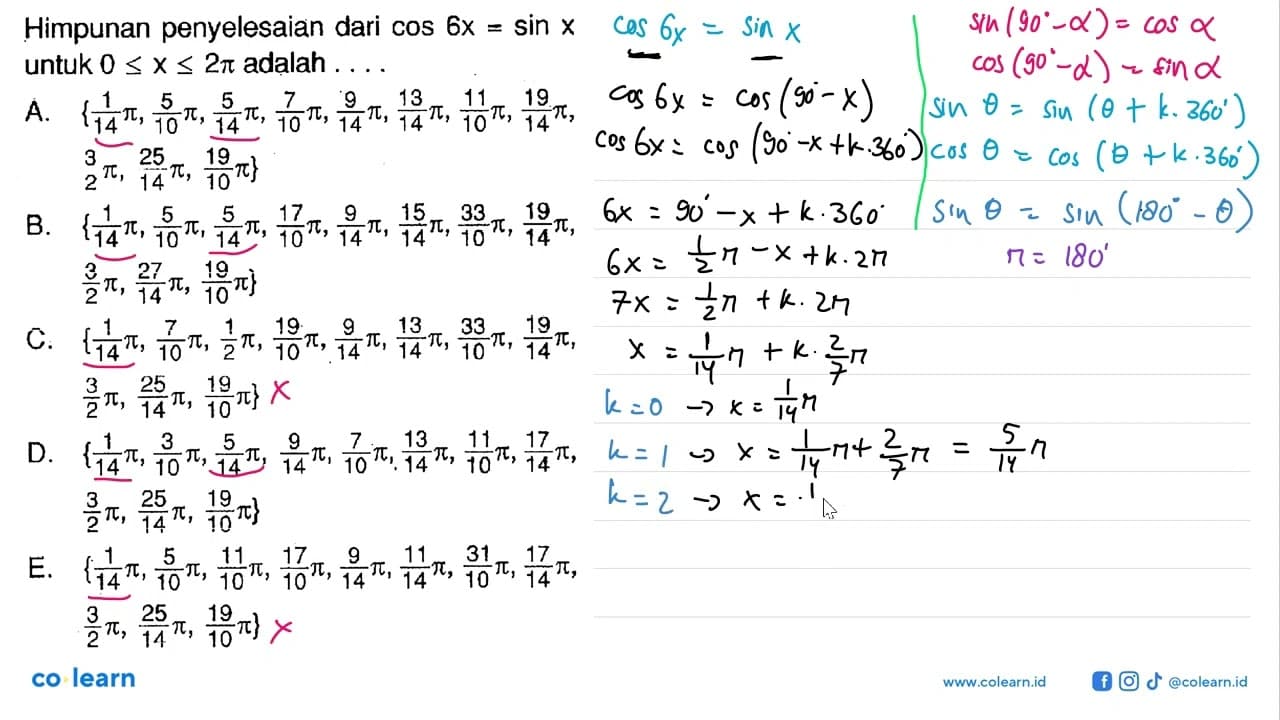 Himpunan penyelesaian dari cos 6x = sin x
untuk 0 ≤ x ≤ 2π adalah . . . .
A. {1/14 π, 5/10 π, 5/14 π, 7/10 π, 9/14 π, 13/14 π, 11/10 π, 19/14 π,
3/2 π, 25/14 π, 19/10 π}
B. {1/14 π, 5/10 π, 5/14 π, 17/10 π, 9/14 π, 15/14 π, 33/10 π, 19/14 π,
3/2 π, 27/14 π, 19/10 π}
C. {1/14 π, 7/10 π, 1/2 π, 19/10 π, 9/14 π, 13/14 π, 33/10 π, 19/14 π,
3/2 π, 25/14 π, 19/10 π} ×
D. {1/14 π, 3/10 π, 5/14 π, 9/14 π, 7/10 π, 13/14 π, 11/10 π, 17/14 π,
3/2 π, 25/14 π, 19/10 π}
E. {1/14 π, 5/10 π, 11/10 π, 17/10 π, 9/14 π, 11/14 π, 31/10 π, 17/14 π,
3/2 π, 25/14 π, 19/10 π} ×
cos 6x = sin x
cos 6x = cos (90° - x)
cos 6x = cos (90° - x + k.360°)
6x = 90° - x + k.360°
6x = 1/2 π - x + k.2π
7x = 1/2 π + k.2π
x = 1/14 π + k.2/7 π
k = 0 → x = 1/14 π
k = 1 → x = 1/14 π + 2/7 π = 5/14 π
k = 2 → x = 1
sin (90° - α) = cos α
cos (90° - α) = sin α
sin θ = sin (θ + k.360°)
cos θ = cos (θ + k.360°)
sin θ = sin (180° - θ)
π = 180°
co learn
www.colearn.id
@colearn.id